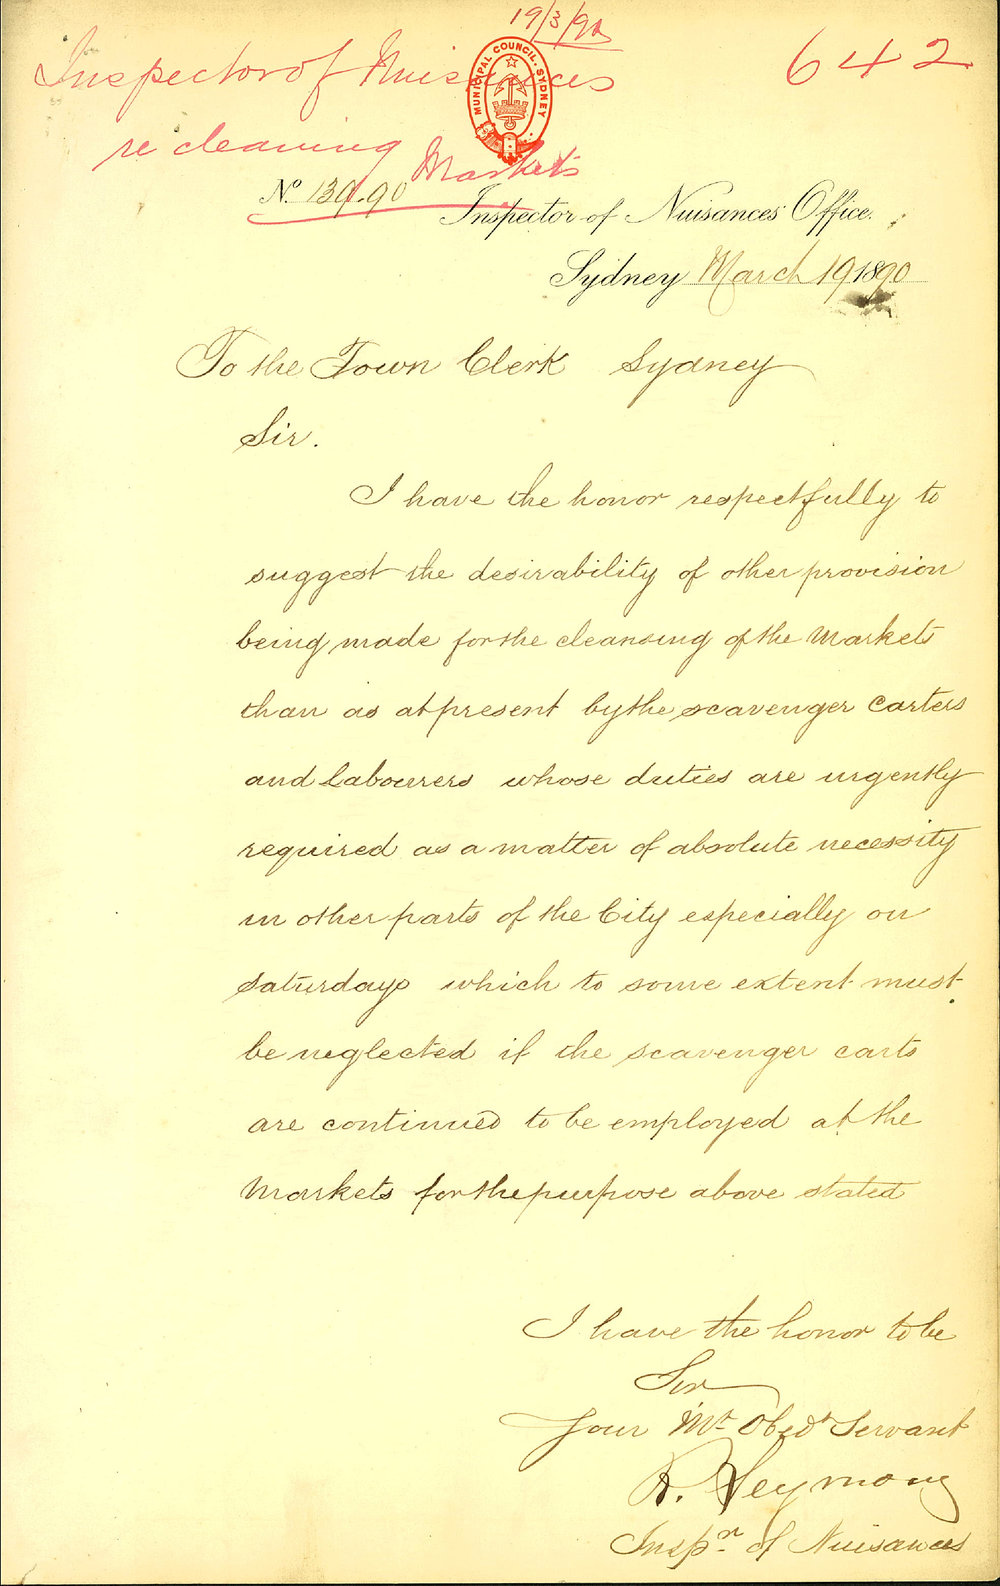 19/3/90
Inspector of Nuisances
642
MUNICIPAL COUNCIL. SYDNEY
re cleaning Markets
No. 139.90
Inspector of Nuisances Office.
Sydney March 19 1890
To the Town Clerk Sydney
Sir.
I have the honor respectfully to
suggest the desirability of other provision
being made for the cleansing of the Markets
than as at present by the scavenger carters
and labourers whose duties are urgently
required as a matter of absolute necessity
in other parts of the City especially on
saturdays which to some extent must
be neglected if the scavenger carts
are continued to be employed at the
Markets for the purpose above stated
I have the honor to be
Sir
Your Mt Obedt Servant
R. Seymour
Inspr. of Nuisances